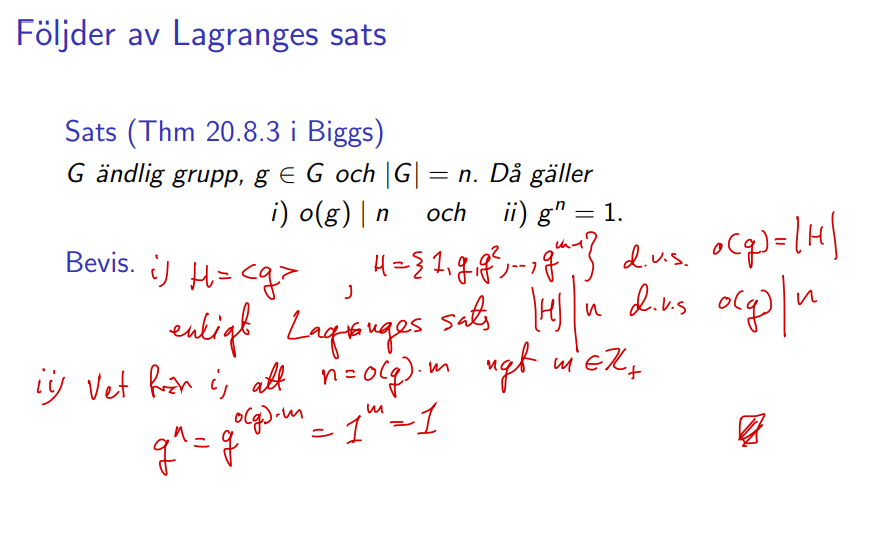 Följder av Lagranges sats
Sats (Thm 20.8.3 i Biggs)
G ändlig grupp, g ∈ G och |G| = n. Då gäller
i) o(g) | n och ii) gⁿ = 1.
Bevis. i) H = <g> , H = {1, g, g², ..., gᵐ⁻¹} d.v.s. o(g) = |H|
enligt Lagranges sats |H| | n d.v.s o(g) | n
ii) Vet från i, att n = o(g)·m ngt m ∈ ℤ₊
gⁿ = g^{o(g)·m} = 1ᵐ = 1